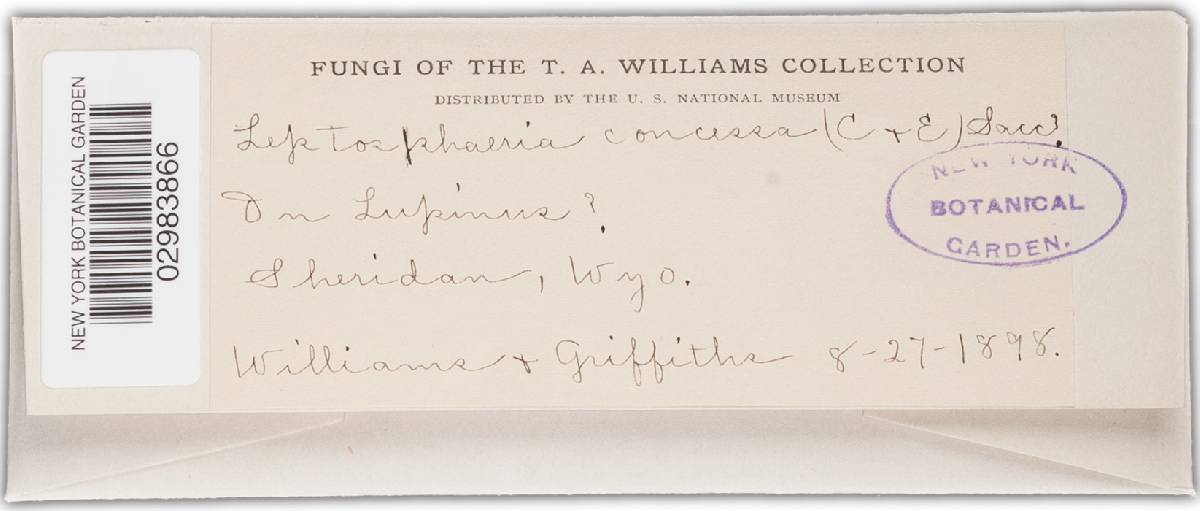 FUNGI OF THE T. A. WILLIAMS COLLECTION
DISTRIBUTED BY THE U. S. NATIONAL MUSEUM
Leptosphaeria concessa (C + E) Sacc?
On Lupinus?
Sheridan, Wyo.
Williams + Griffiths 8-27-1898.
NEW YORK
BOTANICAL
GARDEN.
NEW YORK BOTANICAL GARDEN
02983866